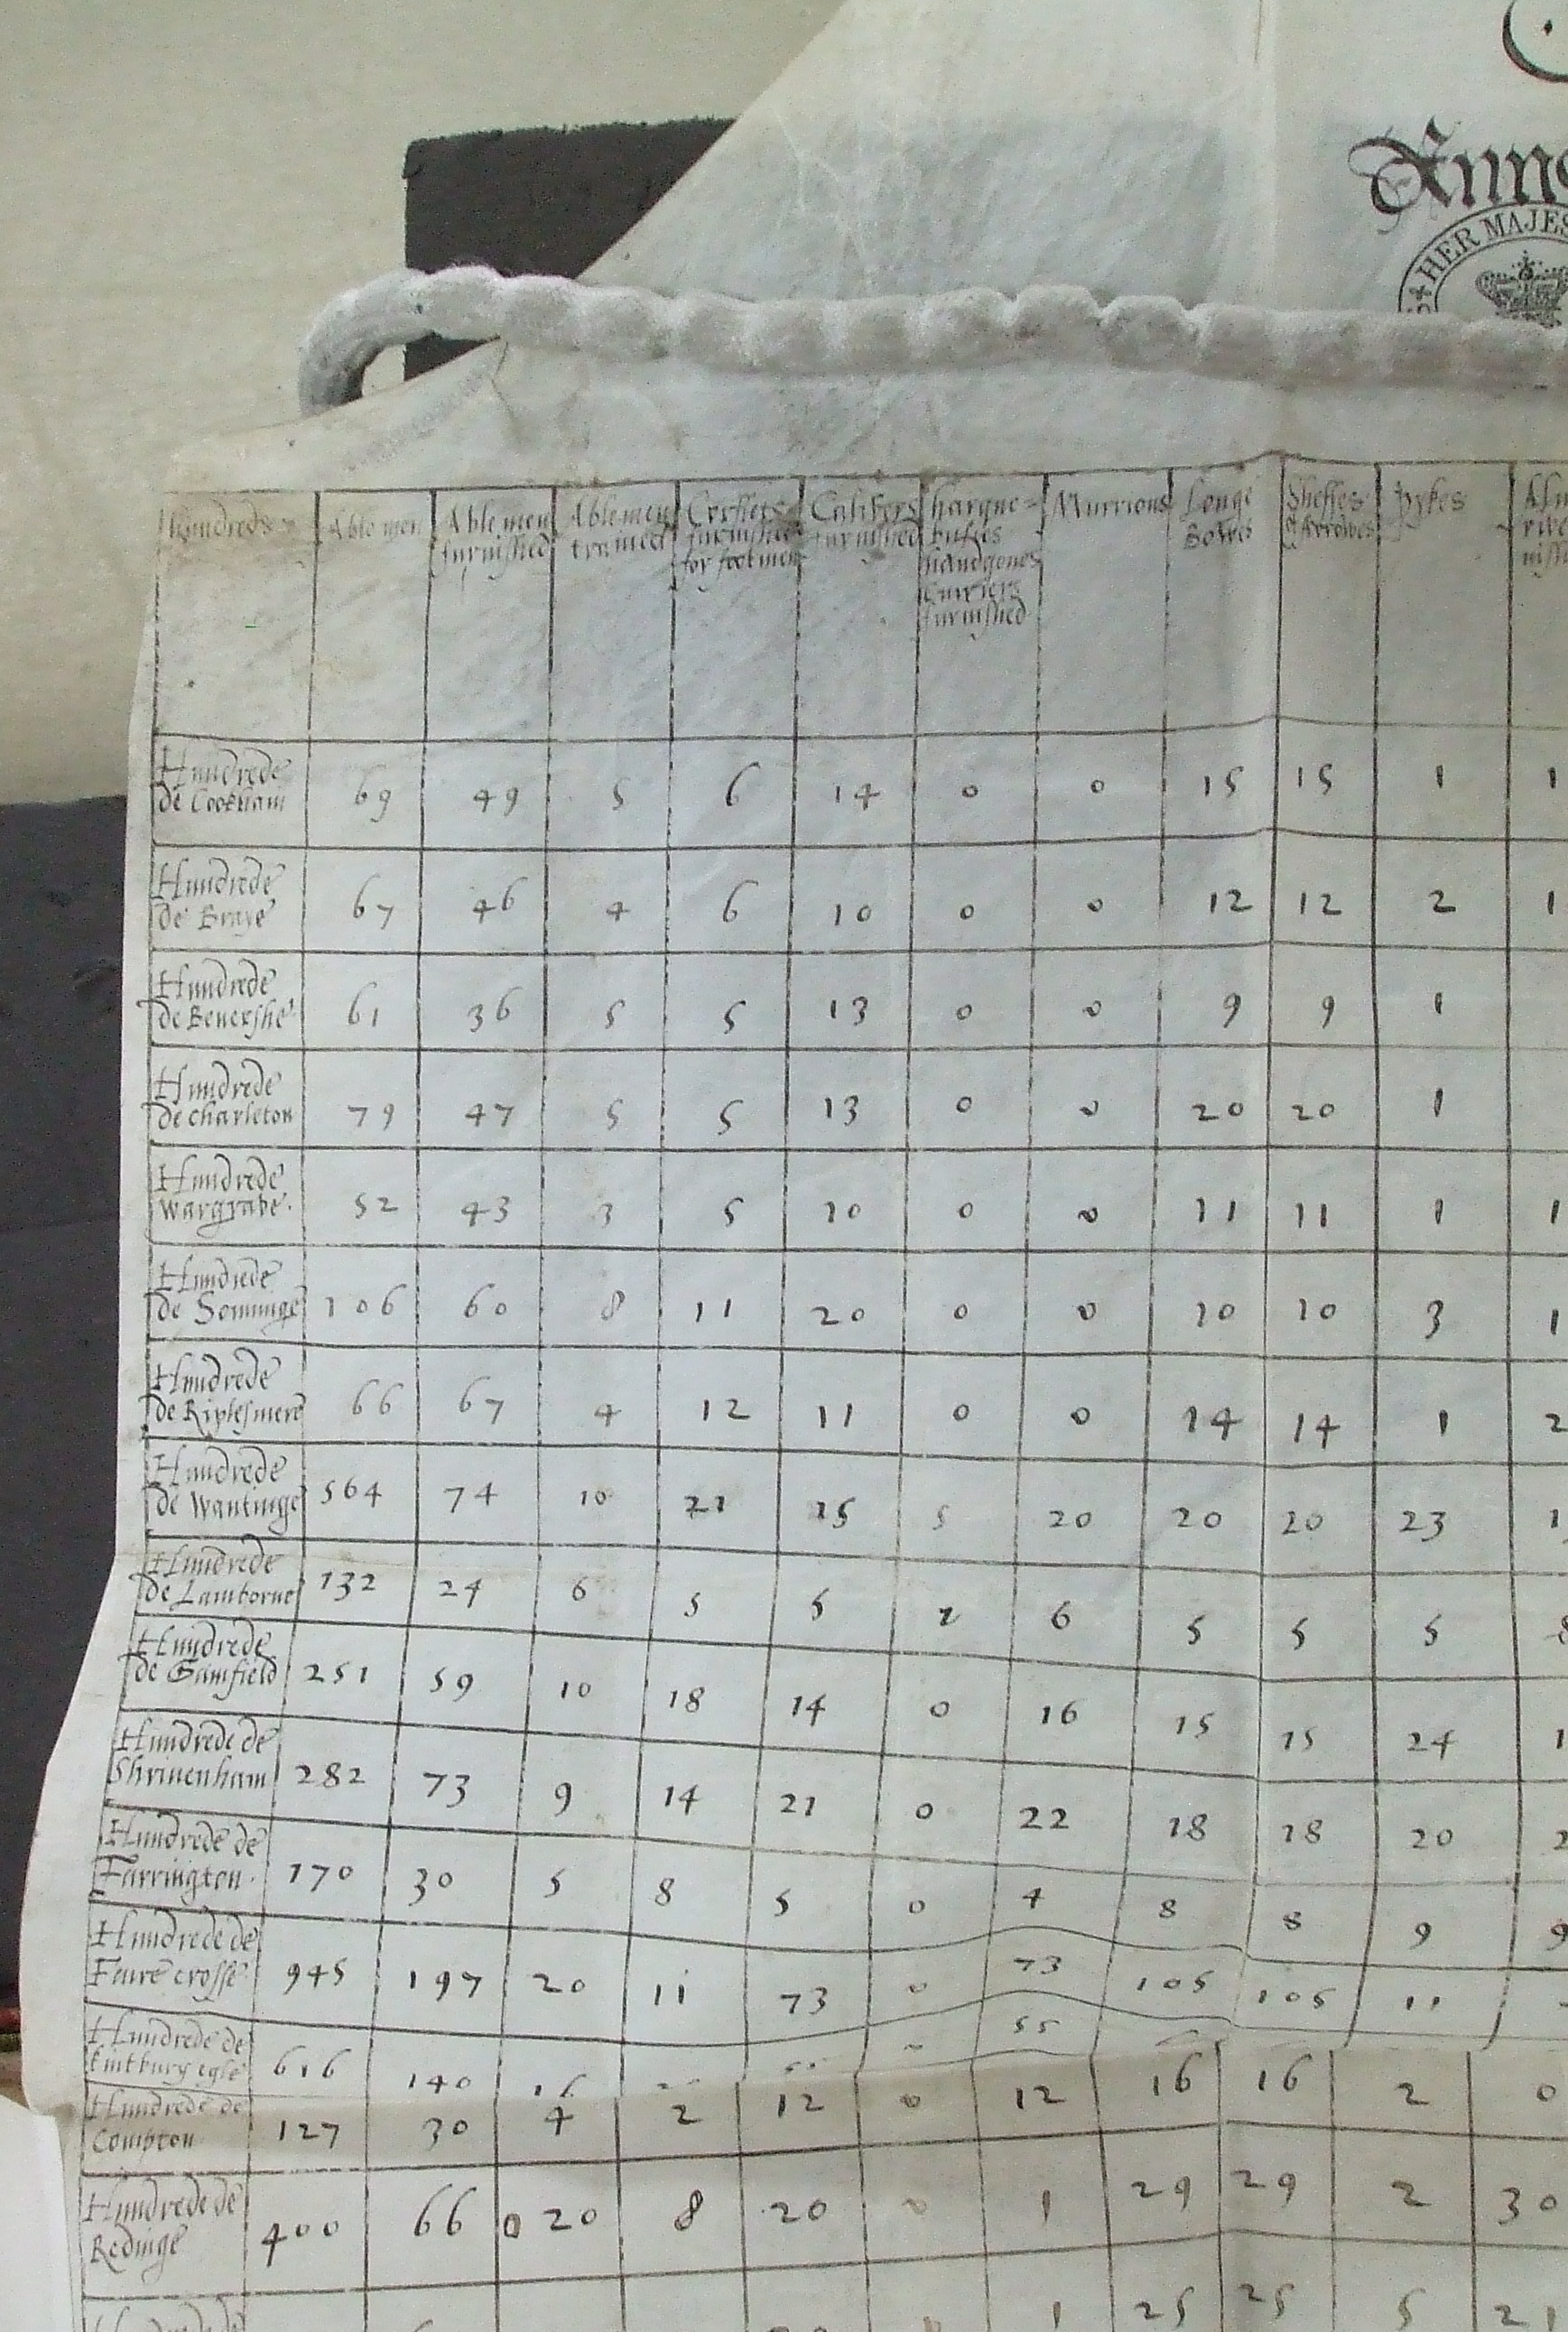 Anno
HER MAJES
Hundreds Able men Able men furnished Able men trained Corslets furnished for footmen Calivers furnished harque= busses handgones Curriers furnished Murrions Longe Bowes Sheffes of Arrowes Pykes
Hundrede de Cookham 69 49 5 6 14 0 0 15 15 1 1
Hundrede de Braye 67 46 4 6 10 0 0 12 12 2 1
Hundrede de Benershe 61 36 5 5 13 0 0 9 9 1
Hundrede de Charleton 79 47 5 5 13 0 0 20 20 1
Hundrede Wargrabe. 52 43 3 5 10 0 0 11 11 1 1
Hundrede de Sonninge 106 60 8 11 20 0 0 10 10 3 1
Hundrede de Riplesmere 66 67 4 12 11 0 0 14 14 1 2
Hundrede de Wantinge 564 74 10 21 15 5 20 20 20 23 1
Hundrede de Lamborne 132 24 6 5 5 2 6 5 5 5
Hundrede de Gamfield 251 59 10 18 14 0 16 15 15 24 1
Hundrede de Shrivenham 282 73 9 14 21 0 22 18 18 20 2
Hundrede de Farrington. 170 30 5 8 5 0 4 8 8 9 9
Hundrede de Faire crosse 945 197 20 11 73 0 73 105 105 11
Hundrede de kintbury egle 616 140 16 55
Hundrede de Compton 127 30 4 2 12 0 12 16 16 2 0
Hundrede de Redinge 400 66 0 20 8 20 0 1 29 29 2 30
Hundrede 1 25 25 5 21